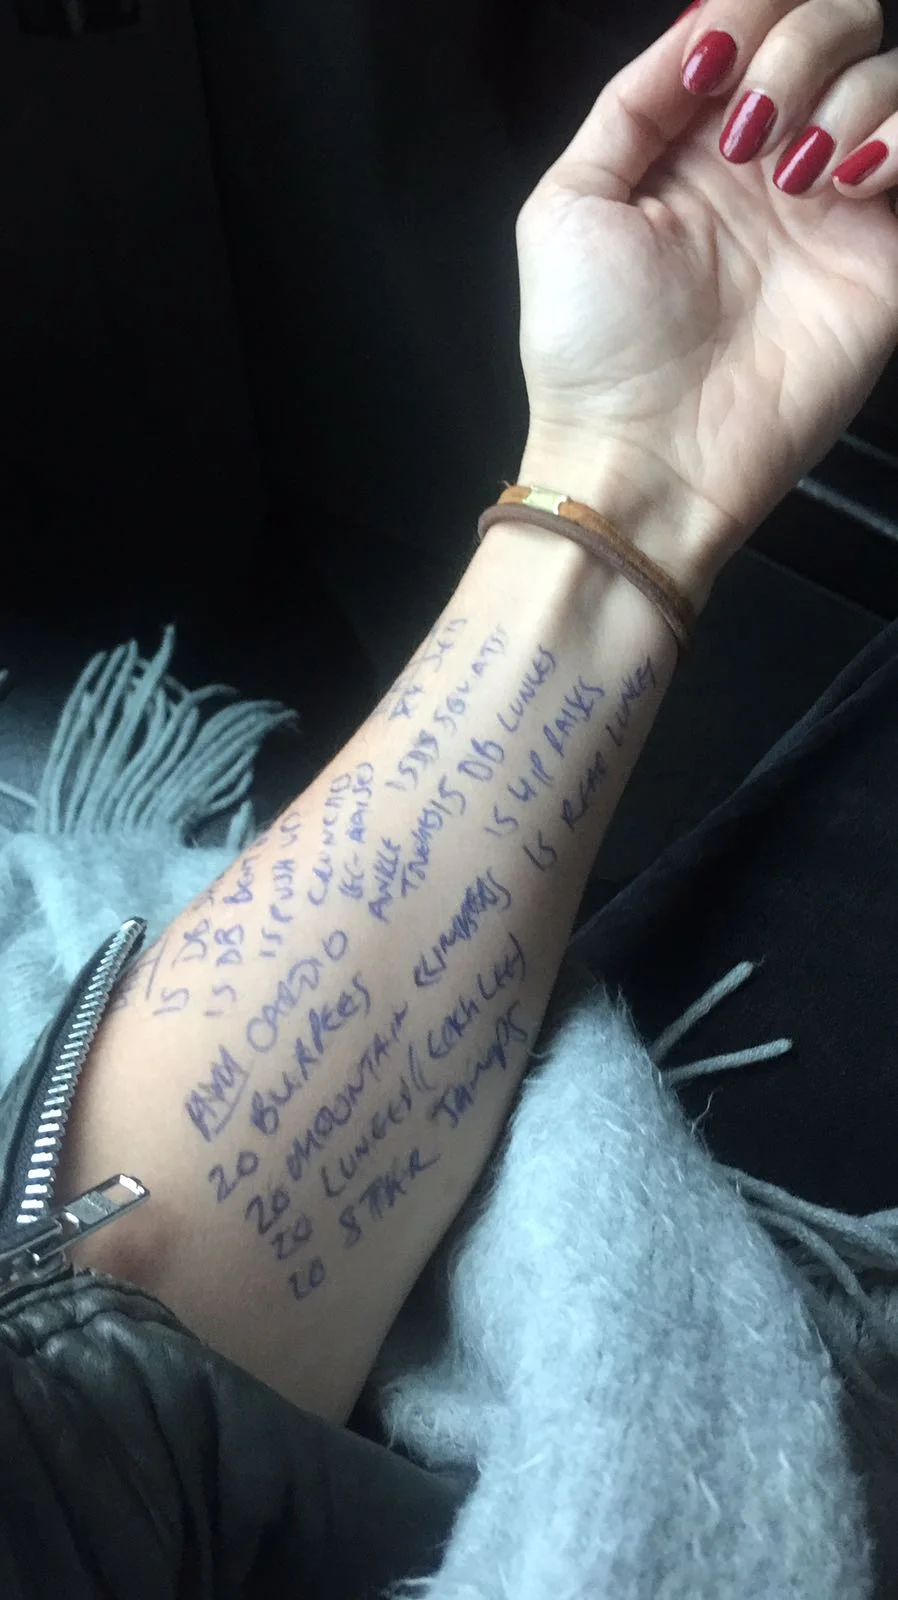 15 DB
15 DB
15 PUSH UPS
CRUNCHES
LEG RAISES
ANKLE
TOUCHES
SETS
15 DB SQUATS
15 DB LUNGES
15 HIP RAISES
15 REAR LUNGES
CARDIO
20 BURPEES
20 MOUNTAIN CLIMBERS
20 LUNGES (EACH LEG)
20 STAR JUMPS